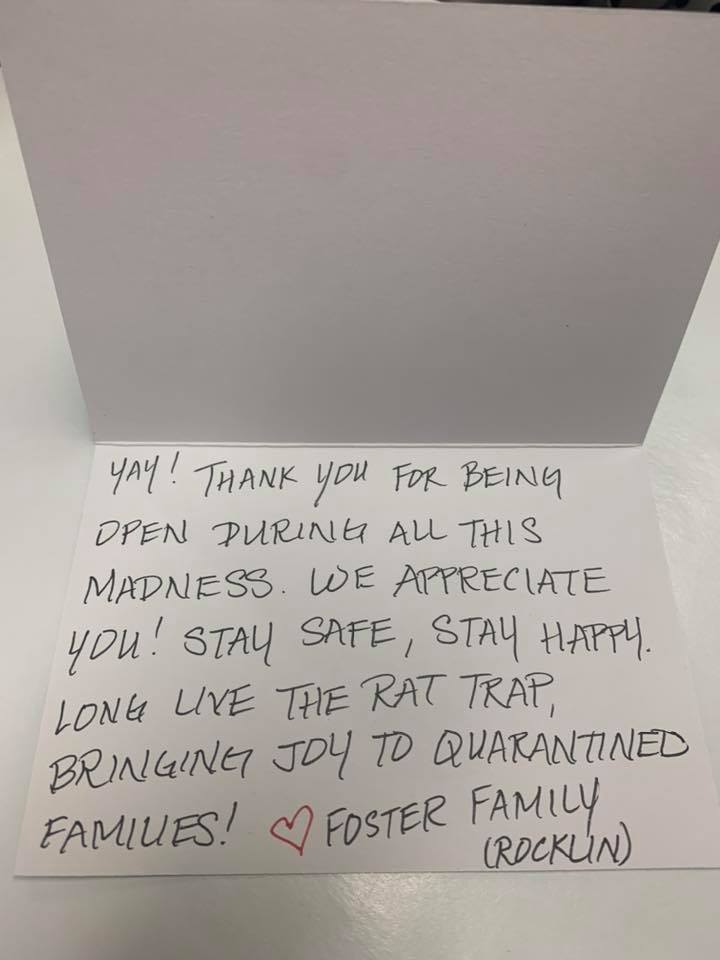 YAY! THANK YOU FOR BEING
OPEN DURING ALL THIS
MADNESS. WE APPRECIATE
YOU! STAY SAFE, STAY HAPPY.
LONG LIVE THE RAT TRAP,
BRINGING JOY TO QUARANTINED
FAMILIES! ♡ FOSTER FAMILY
(ROCKLIN)